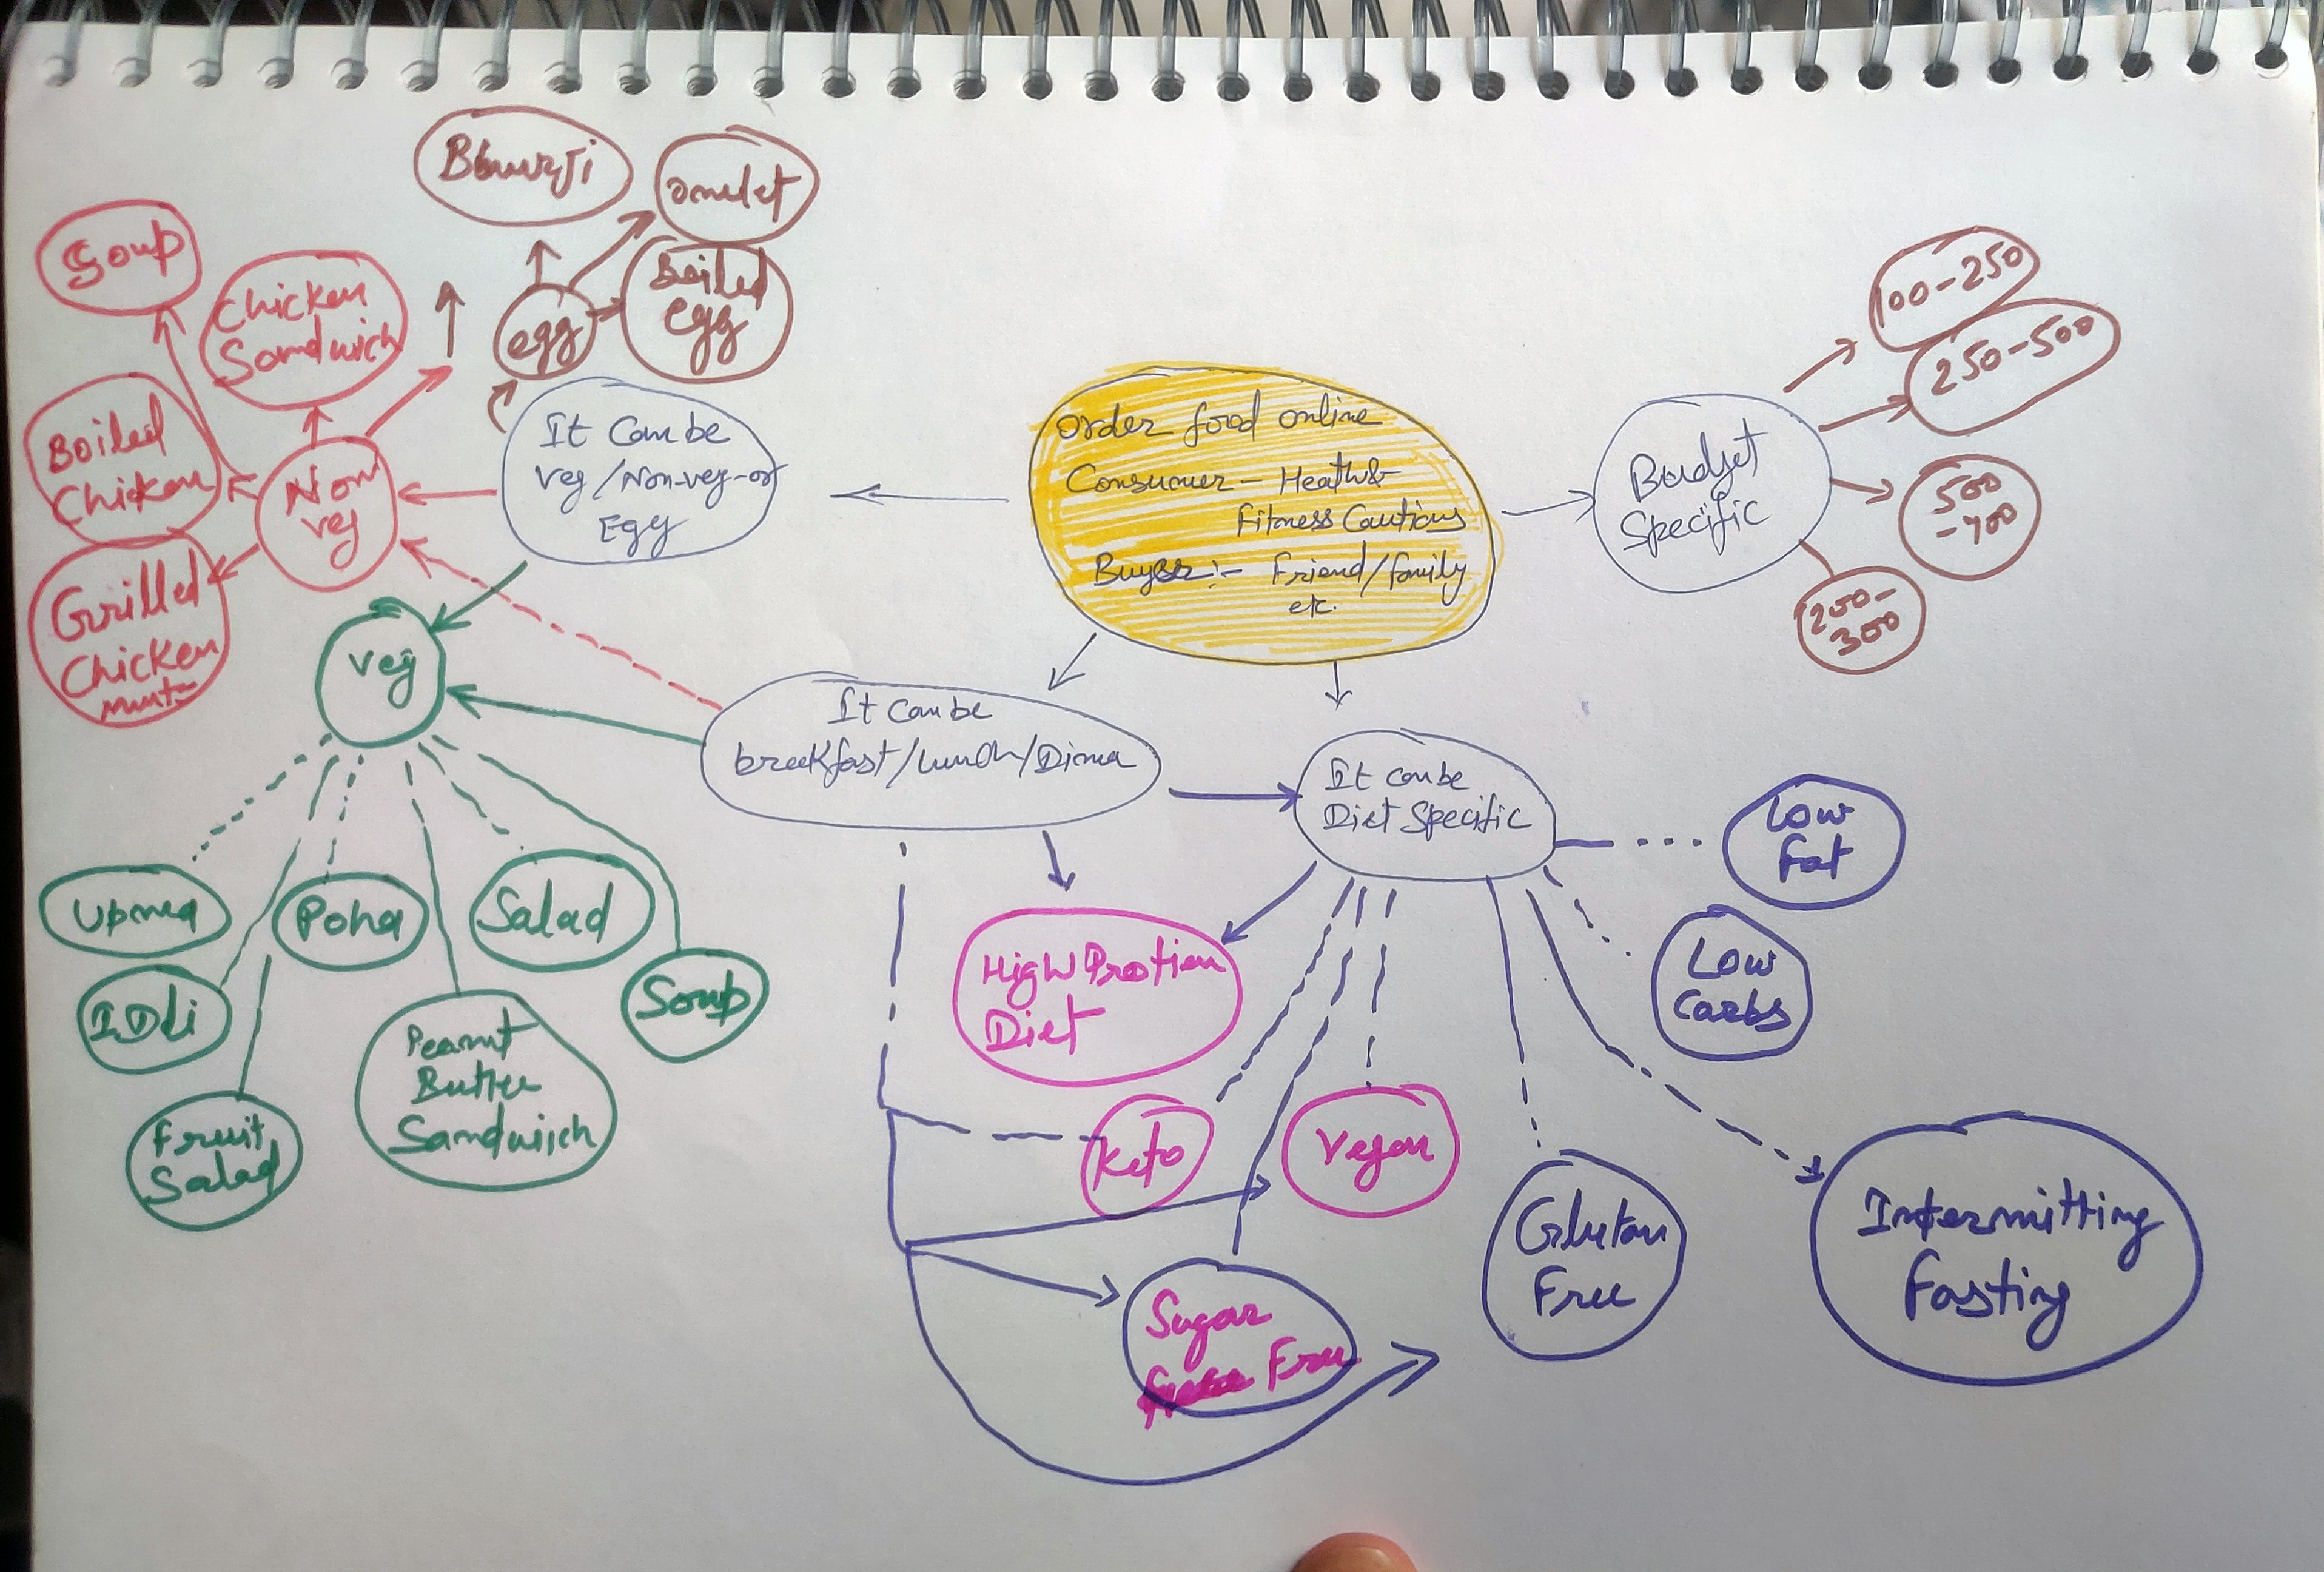 Bhurji
omlet
Soup
Chicken
Sandwich
egg
Boiled
egg
Boiled
Chicken
Non
veg
Grilled
Chicken
It can be
Veg/Non-veg-or
Egg
Order food online
Consumer - Heath&
Fitness Cautions
Buyer :- Friend/family
etc.
Budjet
Specific
100-250
250-500
500
-700
250-
300
veg
It can be
breakfast/lunch/Dinner
It can be
Diet Specific
Low
fat
Low
Carbs
Upma
Poha
Salad
IDli
Soup
Peanut
Butter
Sandwich
Fruit
Salad
High Protien
Diet
Keto
Vegan
Sugar
Free
Gluten
Free
Intermitting
fasting